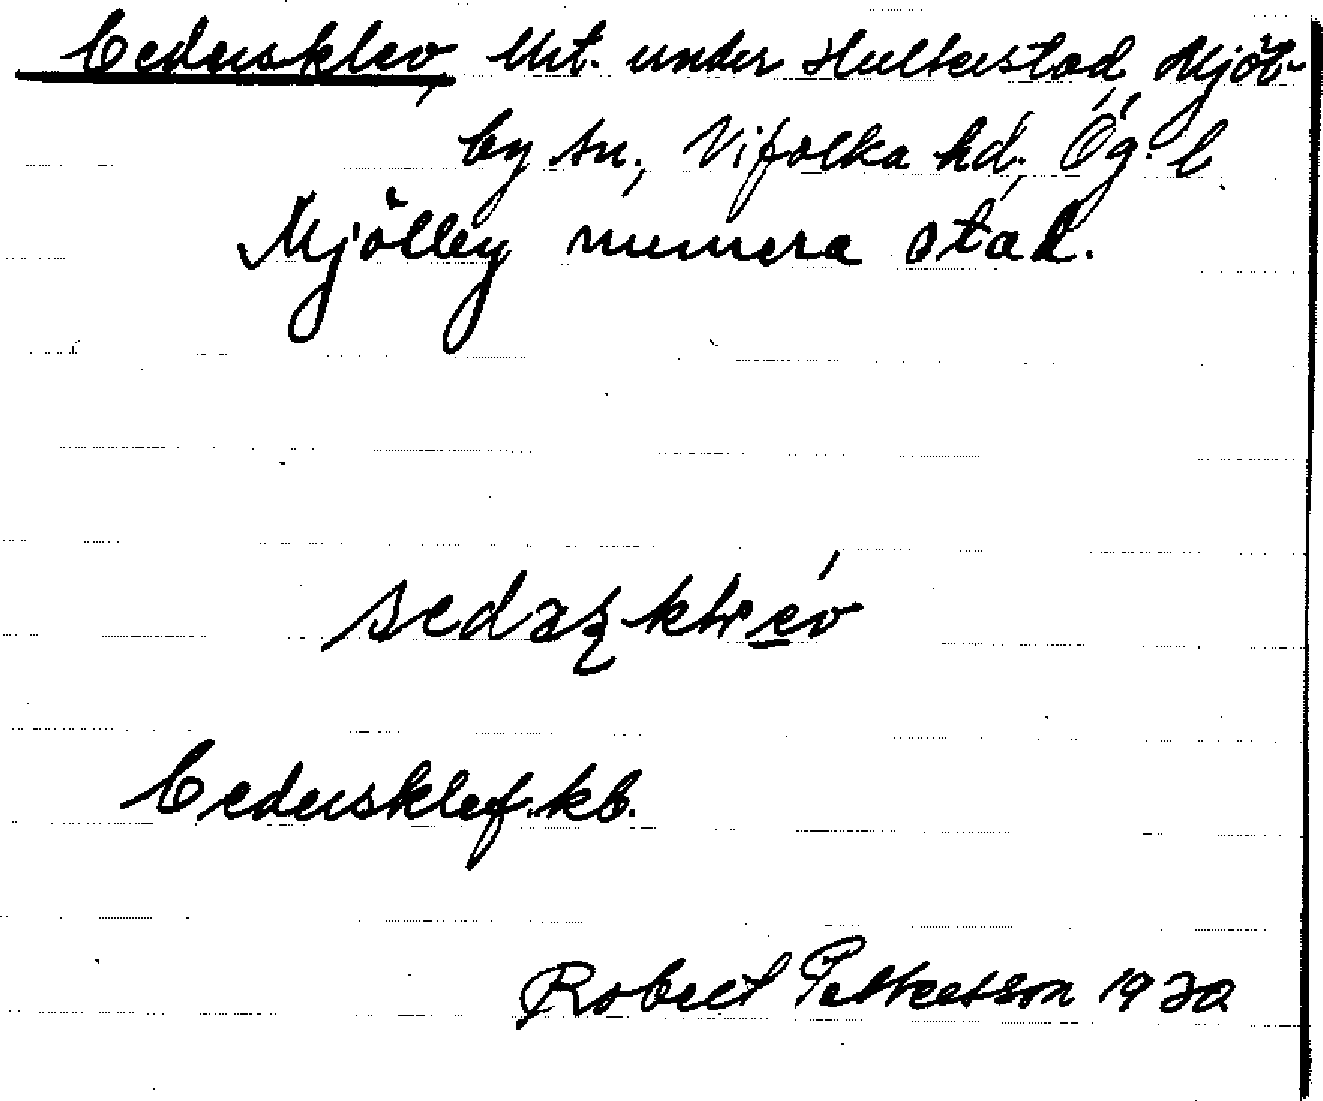 Cedersklev, Urt. under Hulterstad, Mjöl-
by sn., Vifolka hd. Ög. l
Mjölby numera stad.
Cedersklef. kb.
Robert Petterson 1932